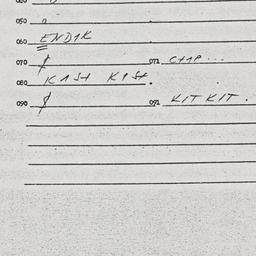 050
060 ENDIK
070 071 CHIP...
080 KISH KISH.
090 091 KIT KIT.